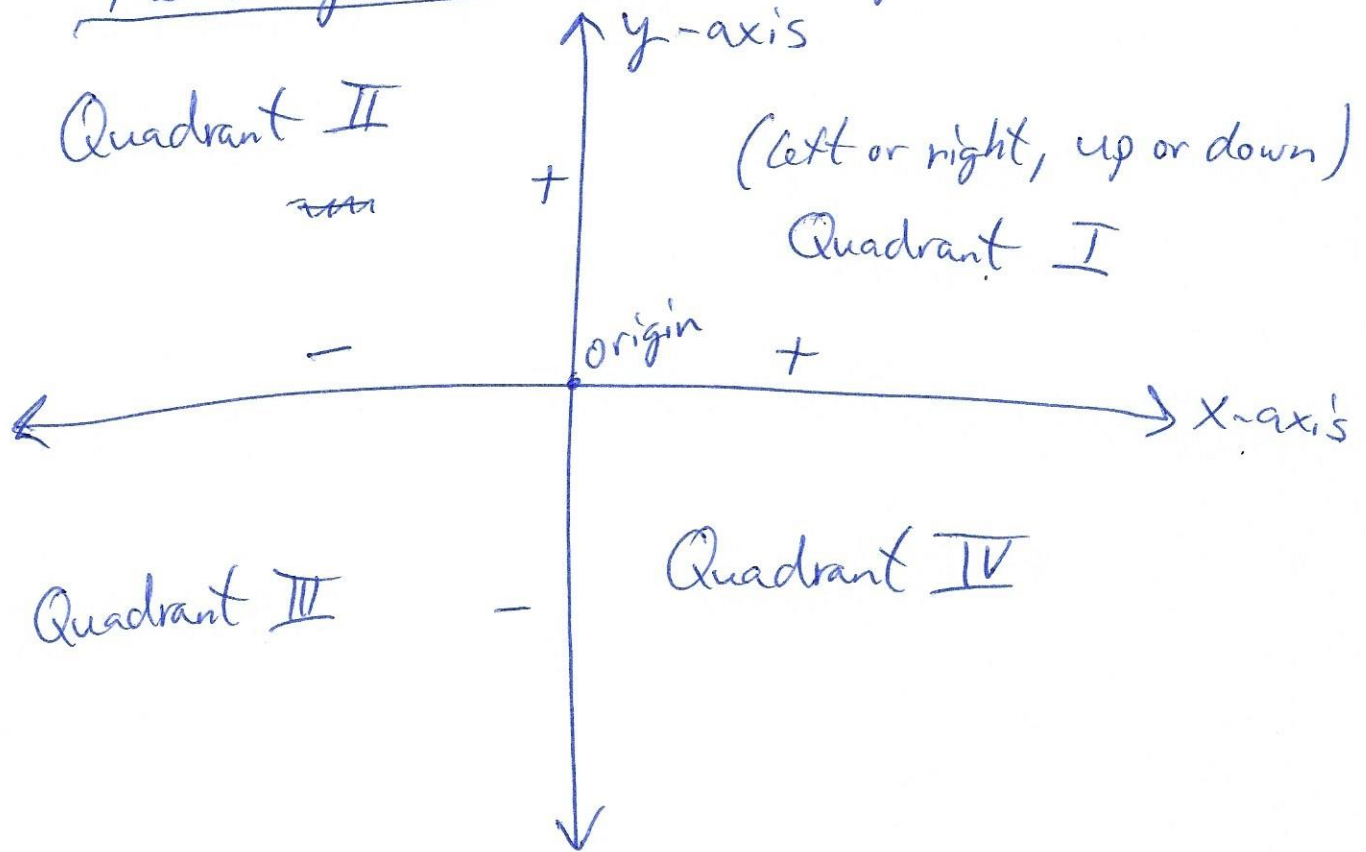 y-axis
Quadrant II
(left or right, up or down)
+
Quadrant I
origin
-
+
x-axis
Quadrant IV
Quadrant III
-